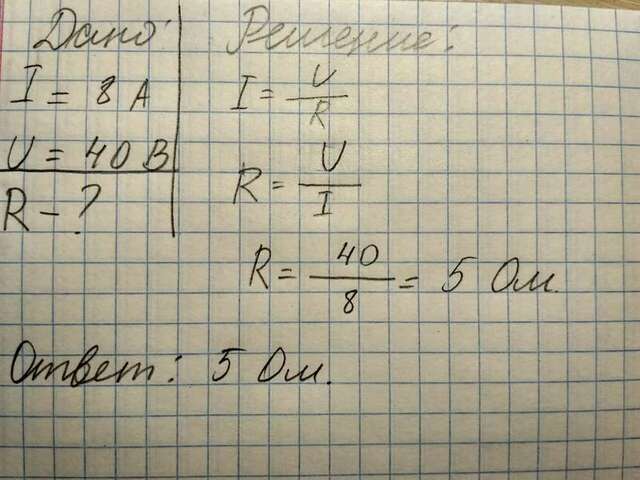 Дано:
I = 8 А
U = 40 В
R - ?
Решение:
I = U/R
R = U/I
R = 40/8 = 5 Ом.
Ответ: 5 Ом.